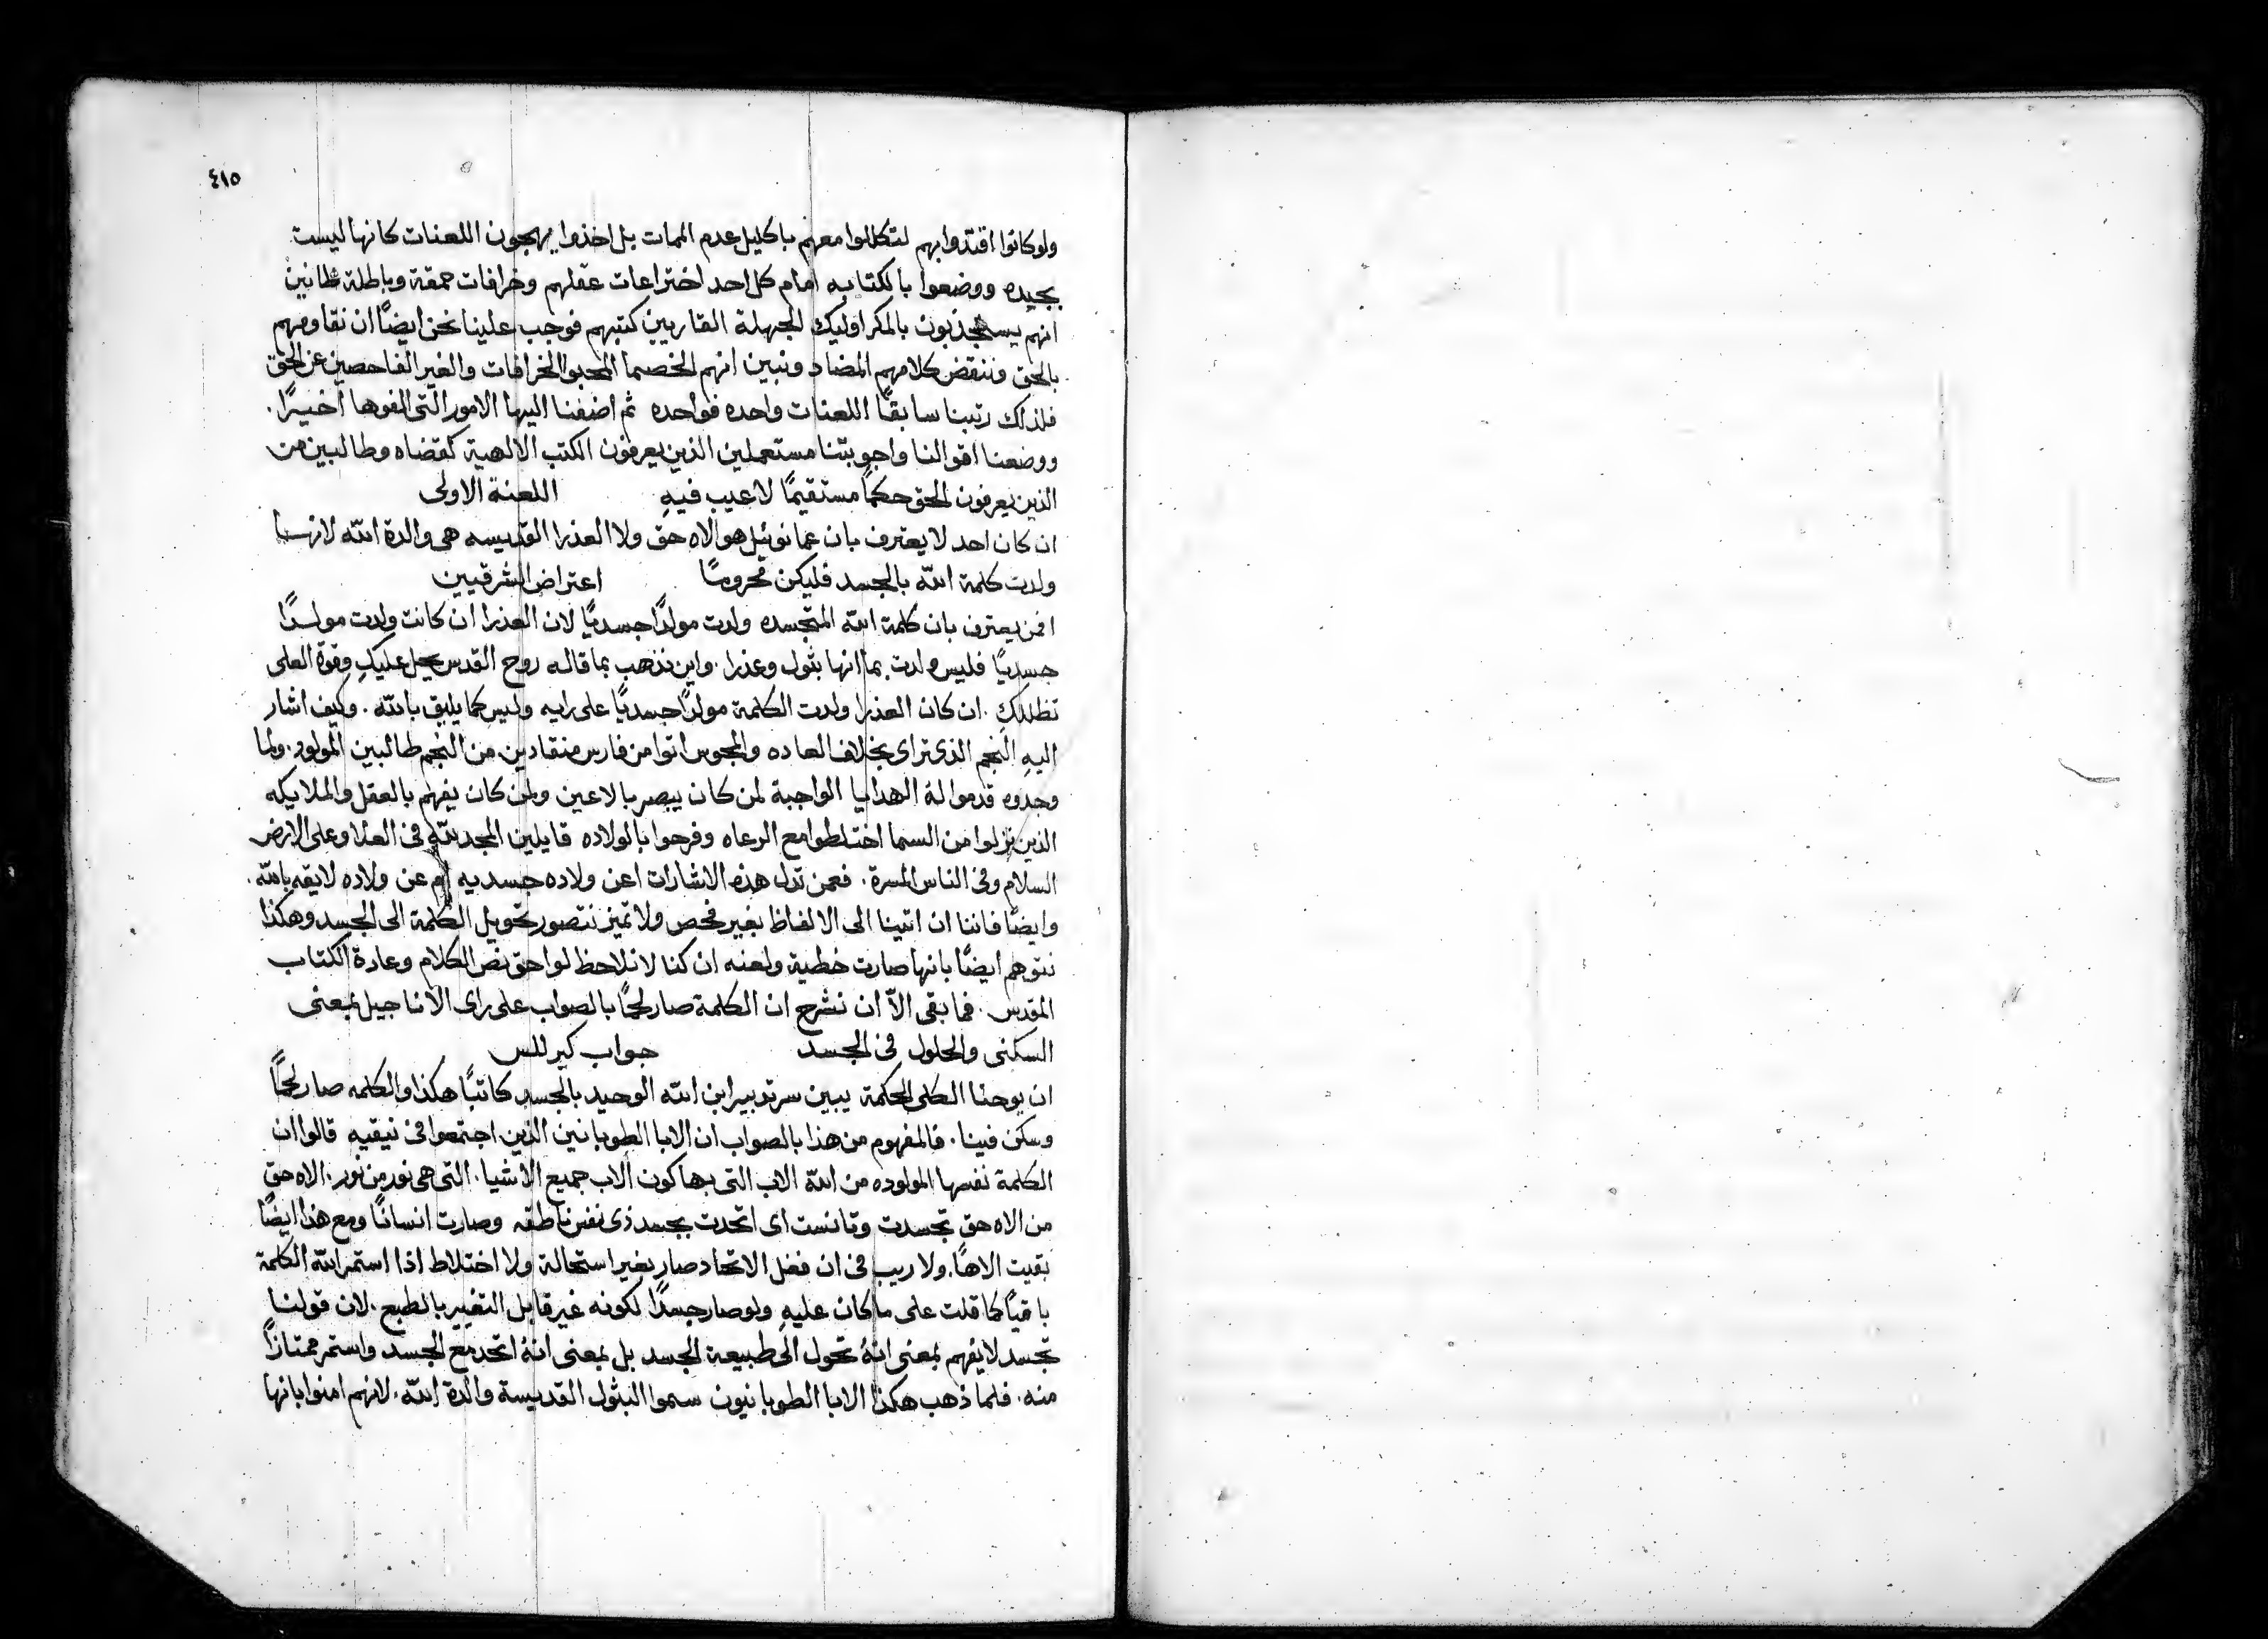 ٤١٥
ولو كانوا اقتدوا بهم لتكللوا معهم باكليل عدم الممات بل اخذوا يهجون اللعنات كانها ليست
بجيده ووضعوا بالكتابه امام كل احد اختراعات عقلهم وخرافات حمقة وباطلة ظانين
انهم يستجذبون بالمكر اوليك الجهلة القاريين كتبهم فوجب علينا نحن ايضًا ان نقاومهم
بالحق وننقض كلامهم المضاد ونبين انهم الخصما المحبوا الخرافات والغير الفاحصين عن الحق
فلذلك رتبنا سابقًا اللعنات واحده فواحده ثم اضفنا اليها الامور التى الفوها اخيرًا.
ووضعنا اقوالنا واجوبتنا مستعملين الذين يعرفون الكتب الالهية كقضاه وطالبين من
الذين يعرفون الحق حكمًا مستقيمًا لا عيب فيهِ اللعنة الاولى
ان كان احد لا يعترف بان عمانوئيل هو الاه حق ولا العذرا القديسه هى والدة الله لانهــا
ولدت كلمة الله بالجسد فليكن محرومًا اعتراض الشرقيين
افمن يعترف بان كلمة الله المتجسده ولدت مولدًا جسديًا لان العذرا ان كانت ولدت مولــدًا
جسديًا فليس ولدت بما انها بثول وعذرا. واين نذهب بما قاله روح القدس يحل عليكِ وقوة العلى
تظللكِ. ان كان العذرا ولدت الكلمة مولدًا جسديًا على رايه وليس كما يليق بالله. وكيف اشار
اليهِ النجم الذى تراى بخلاف العاده والمجوس اتوا من فارس منقادين من النجم طالبين المولود. ولما
وجدوه قدموا لهُ الهدايا الواجبة لمن كان يبصر بالاعين ولمن كان يفهم بالعقل والملايكه
الذين نزلوا من السما اختلطوا مع الرعاه وفرحوا بالولاده قايلين المجد لله فى العلا وعلى الارض
السلام وفى الناس المسرة. فعمن تدل هذه الاشارات اعن ولاده جسديه ام عن ولاده لايقه بالله.
وايضًا فاننا ان اتينا الى الالفاظ بغير فحص ولا تميز نتصور تحويل الكلمة الى الجسد وهكذا
نتوهم ايضًا بانها صارت خطية ولعنه ان كنا لا نلاحظ لواحق نص الكلام وعادة الكتاب
المقدس. فما بقى الاّ ان نشرح ان الكلمة صار لحمًا بالصواب على راى الاناجيل بمعنى
السكنى والحلول فى الجسد جواب كيرللس
ان يوحنا الكلى الحكمة يبين سر تدبير ابن الله الوحيد بالجسد كاتبًا هكذا والكلمه صار لحمًا
وسكن فينا. فالمفهوم من هذا بالصواب ان الابا الطوبانين الذين اجتمعوا فى نيقيه قالوا ان
الكلمة نفسها المولوده من الله الاب التى بها كون الاب جميع الاشيا. التى هى نور من نور. الاه حق
من الاه حق تجسدت وتانست اى اتحدت بجسد ذى نفس ناطقه وصارت انسانًا ومع هذا ايضًا
بقيت الاهًا. ولا ريب فى ان فعل الاتحاد صار بغير استحالة ولا اختلاط اذا استمر الله الكلمة
باقيًا كما قلت على ما كان عليهِ ولو صار جسدًا لكونه غير قابل التغيير بالطبع. لان قولنــا
تجسد لا يفهم بمعنى انهُ تحول الى طبيعة الجسد بل بمعنى انهُ اتحد مع الجسد واستمر ممتازًا
منه. فلما ذهب هكذا الابا الطوبانيون سموا البثول القديسة والدة الله. لانهم امنوا بانها